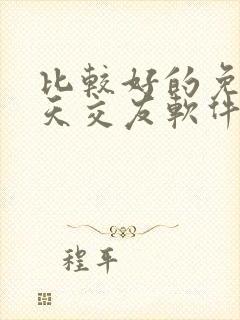 比較好的免
天交友軟件
程平